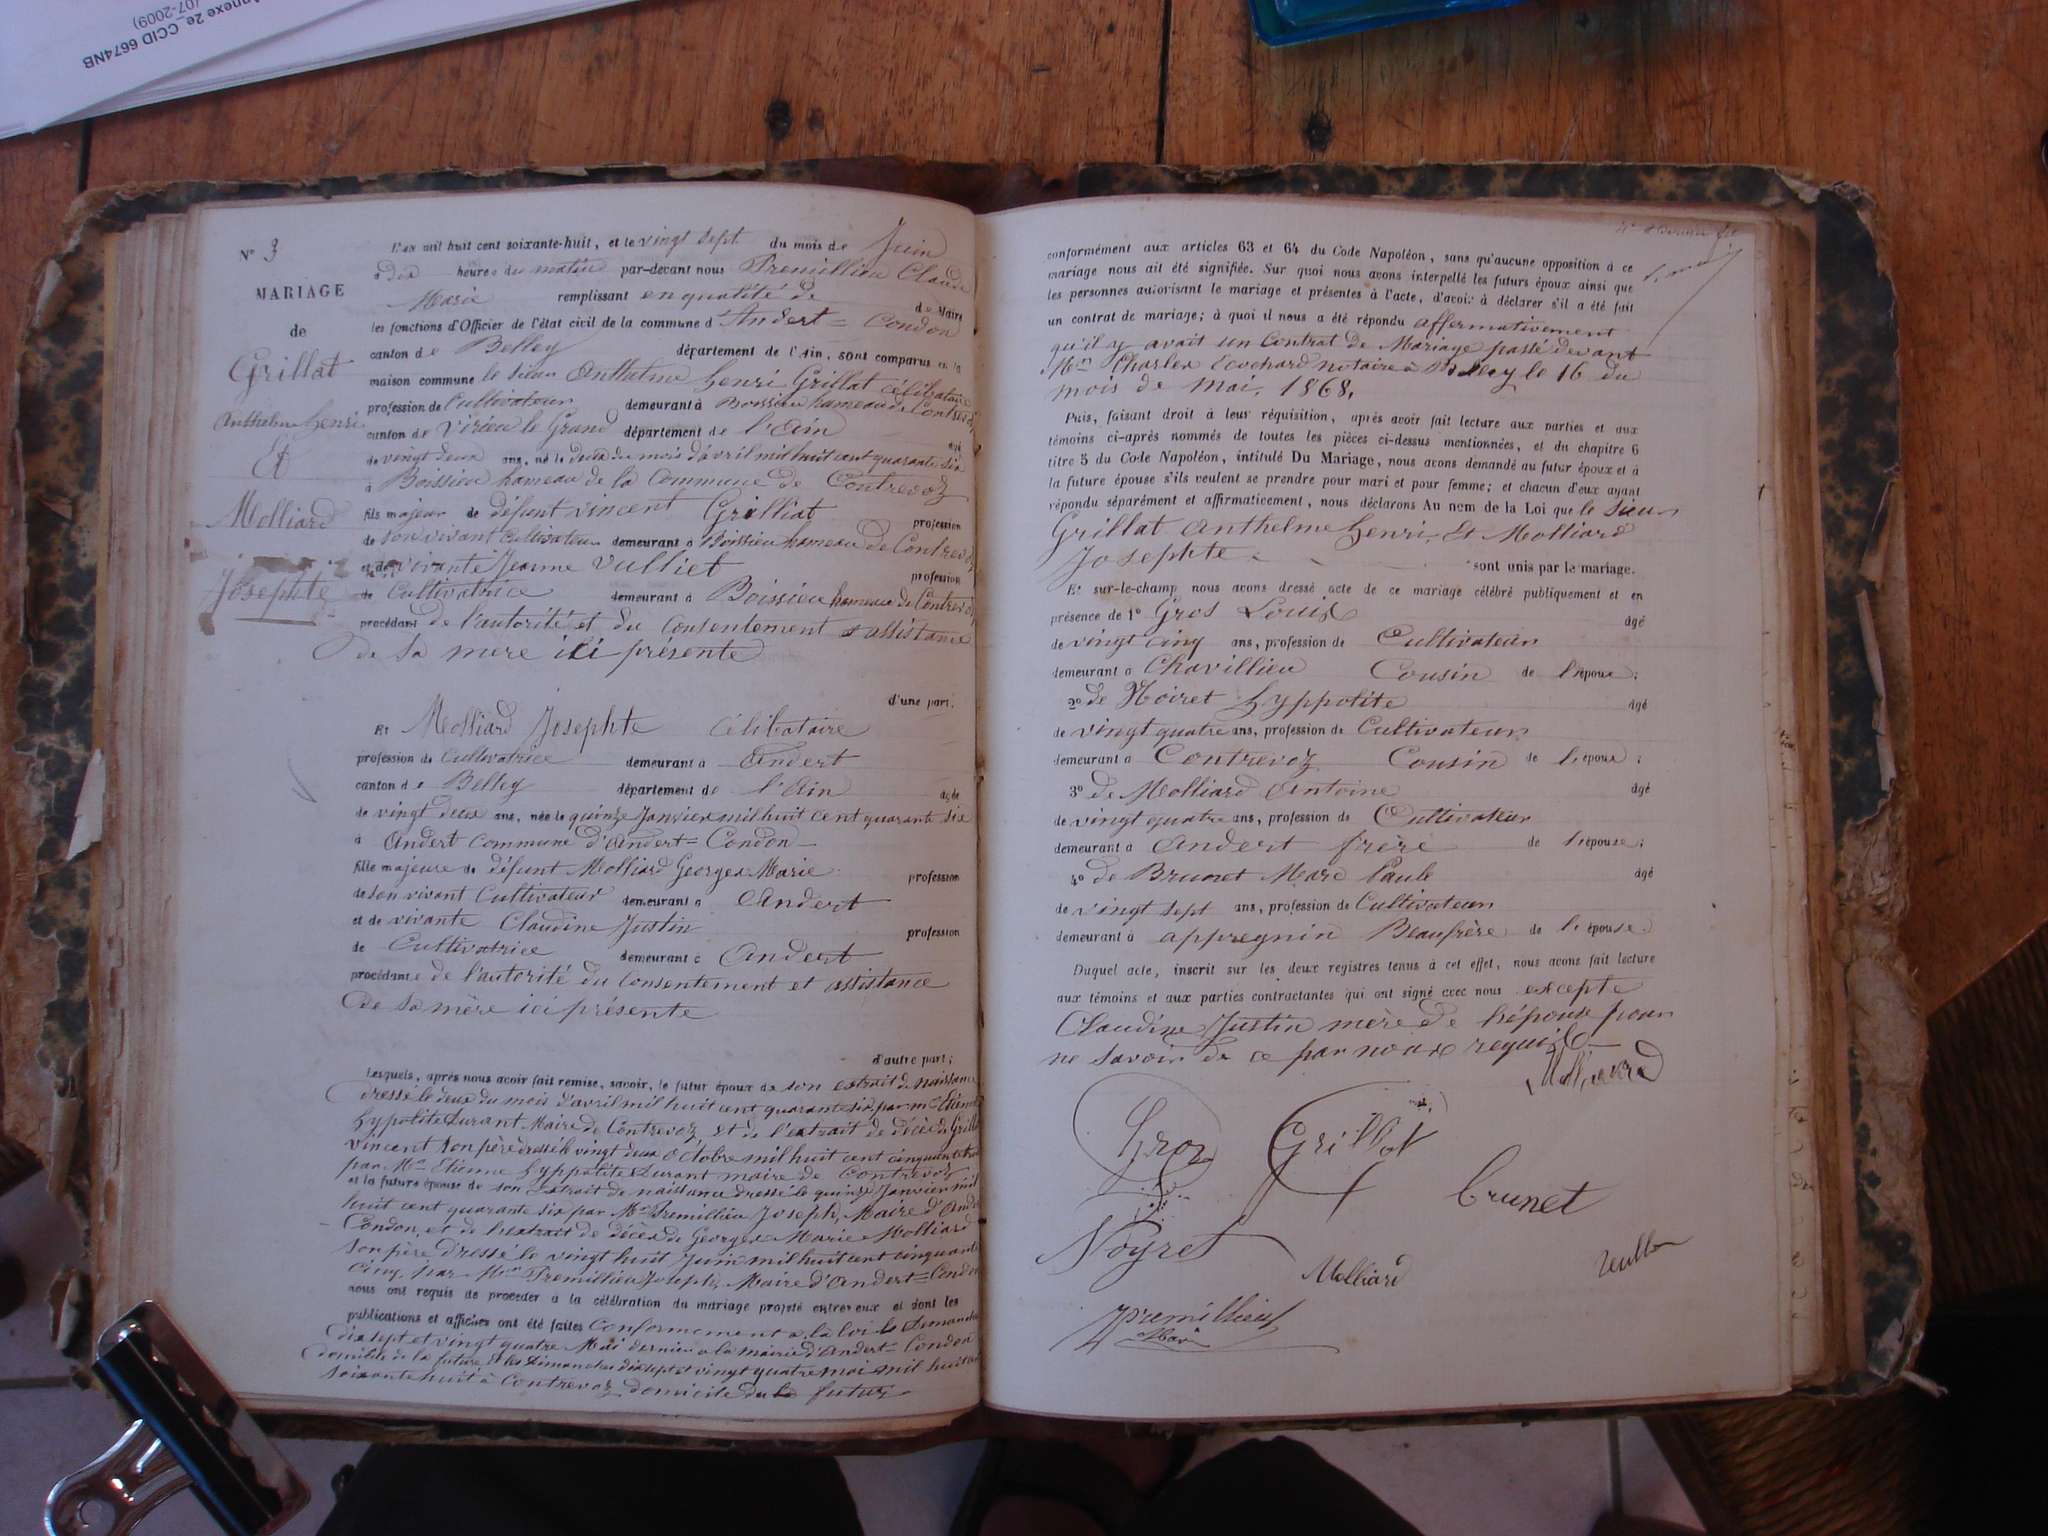 Annexe 2e_CCID 6674NB
(07-2009)
N° 3
MARIAGE
de
Grillat
Anthelme henri
Et
Molliard
Josephte
L'an mil huit cent soixante-huit, et le vingt sept du mois de Juin
à dix heures du matin par-devant nous Premillieu Claude
Marie remplissant en qualité de de Maire
les fonctions d'Officier de l'état civil de la commune d'Andert = Condon
canton de Belley département de l'Ain, sont comparus en la
maison commune le sieur Anthelme henri Grillat célibataire
profession de Cultivateur demeurant à Boissieu hameau de Contrevoz
canton de Virieu le Grand département de l'Ain âgé
de vingt deux ans, né le deux du mois d'avril mil huit cent quarante six
à Boissieu hameau de la Commune de Contrevoz
fils majeur de défunt vincent Grilliat profession
de son vivant Cultivateur demeurant à Boissieu hameau de Contrevoz
et de vivante Jeanne Vulliet profession
de Cultivatrice demeurant à Boissieu hameau de Contrevoz
procédant de l'autorité et du Consentement et assistance
de sa mere ici présente
d'une part;
Et Molliard Josephte célibataire
profession de Cultivatrice demeurant à Andert
canton de Belley département de l'Ain âgée
de vingt deux ans, née le quinze Janvier mil huit cent quarante six
à Andert commune d'Andert = Condon
fille majeure de défunt Molliard Georges Marie profession
de son vivant Cultivateur demeurant à Andert
et de vivante Claudine Justin profession
de Cultivatrice demeurant à Andert
procédante de l'autorité du Consentement et assistance
de sa mère ici présente
d'autre part;
Lesquels, après nous avoir fait remise, savoir, le futur époux de son extrait de naissance
dressé le deux du mois d'avril mil huit cent quarante six par Mr Etienne
hypolite Durant Maire de Contrevoz et de l'extrait de décès de Grillat
vincent son père dressé le vingt deux Octobre mil huit cent cinquante
par Mr Etienne hyppolite Durant maire de Contrevoz
et la future épouse de son extrait de naissance dressé le quinze Janvier mil
huit cent quarante six par Mr Premillieu Joseph, Maire d'Andert
Condon, et de l'extrait de décès de Georges Marie Molliard
son père dressé le vingt huit Juin mil huit cent cinquante
cinq par Mr Premillieu Joseph, Maire d'Andert = Condon
nous ont requis de procéder à la célébration du mariage projeté entre eux et dont les
publications et affiches ont été faites conformement a la loi les Dimanches
dix sept et vingt quatre Mai dernier a la mairie d'Andert = Condon
domicile de la future et les Dimanches dix sept et vingt quatre mai mil huit cent
soixante huit à Contrevoz domicile du futur
conformément aux articles 63 et 64 du Code Napoléon, sans qu'aucune opposition à ce
mariage nous ait été signifiée. Sur quoi nous avons interpellé les futurs époux ainsi que
les personnes autorisant le mariage et présentes à l'acte, d'avoir à déclarer s'il a été fait
un contrat de mariage; à quoi il nous a été répondu affermativement
qu'il y avait un Contrat de Mariage passé devant
Me Charles notaire à Belley le 16 du
mois de mai, 1868,
Puis, faisant droit à leur réquisition, après avoir fait lecture aux parties et aux
témoins ci-après nommés de toutes les pièces ci-dessus mentionnées, et du chapitre 6
titre 5 du Code Napoléon, intitulé Du Mariage, nous avons demandé au futur époux et à
la future épouse s'ils veulent se prendre pour mari et pour femme; et chacun d'eux ayant
répondu séparément et affirmativement, nous déclarons Au nom de la Loi que le sieur
Grillat Anthelme henri, Et Molliard
Josephte sont unis par le mariage.
Et sur-le-champ nous avons dressé acte de ce mariage célébré publiquement et en
présence de 1° Gros Louis âgé
de vingt cinq ans, profession de Cultivateur
demeurant à Chavillieu Cousin de l'époux;
2° de Noiret hyppolite âgé
de vingt quatre ans, profession de Cultivateur
demeurant à Contrevoz Cousin de l'époux;
3° de Molliard Antoine âgé
de vingt quatre ans, profession de Cultivateur
demeurant à Andert frère de l'épouse;
4° de Brunet Marc Paul âgé
de vingt sept ans, profession de Cultivateur
demeurant à appregnin Beaufrère de l'épouse
Duquel acte, inscrit sur les deux registres tenus à cet effet, nous avons fait lecture
aux témoins et aux parties contractantes qui ont signé avec nous excepte
Claudine Justin mère de l'épouse pour
ne savoir de ce par nous requise
Molliard
Gros Grillat
brunet
Noyret
Molliard
Premillieu